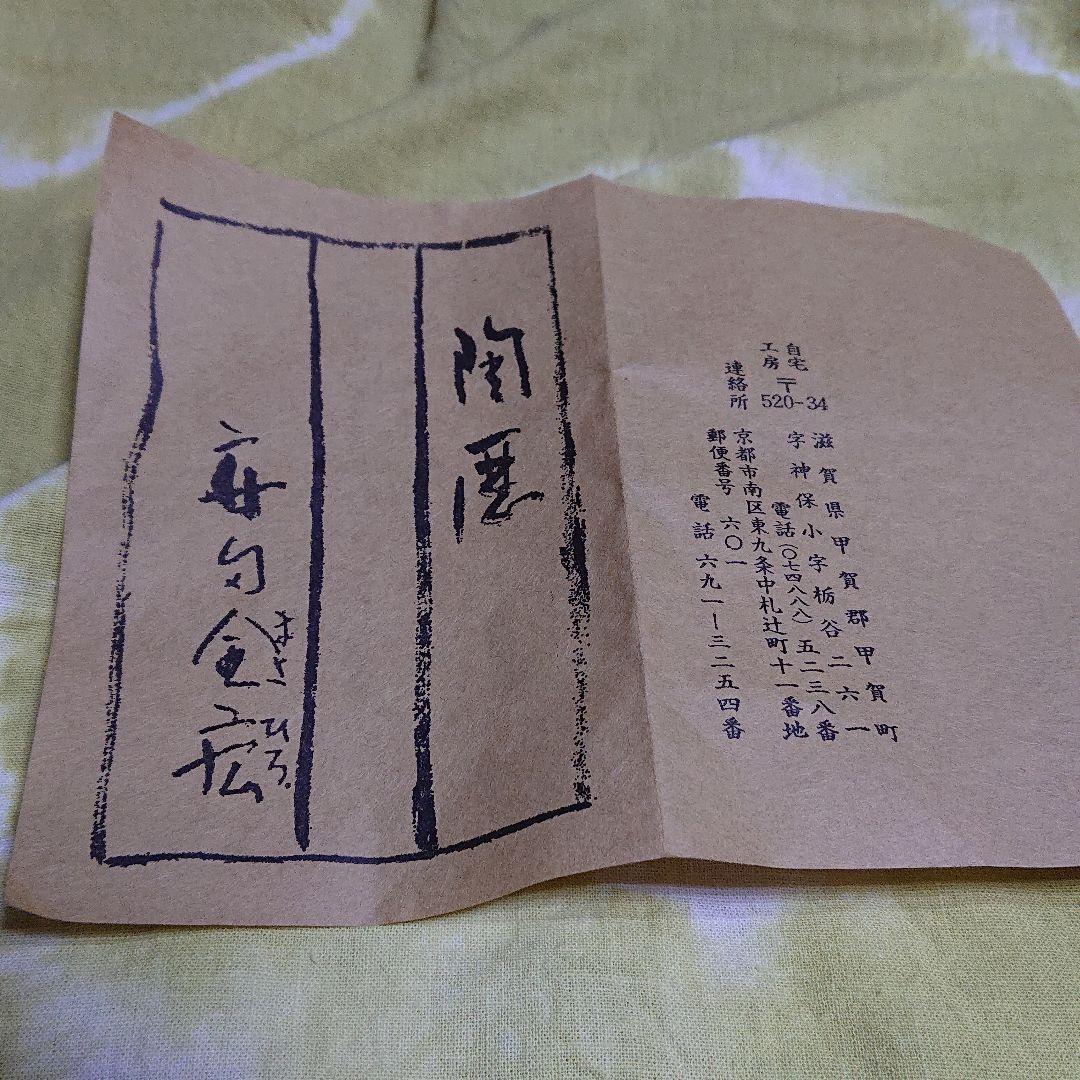 陶歴
まさひろ
自宅
工房
〒520-34
滋賀県甲賀郡甲賀町
字神保小字栃谷二六一
電話(〇七四八八八)五二三八番
連絡所
京都市南区東九条中札辻町十一番地
郵便番号 六〇一
電話 六九一ー三二五四番